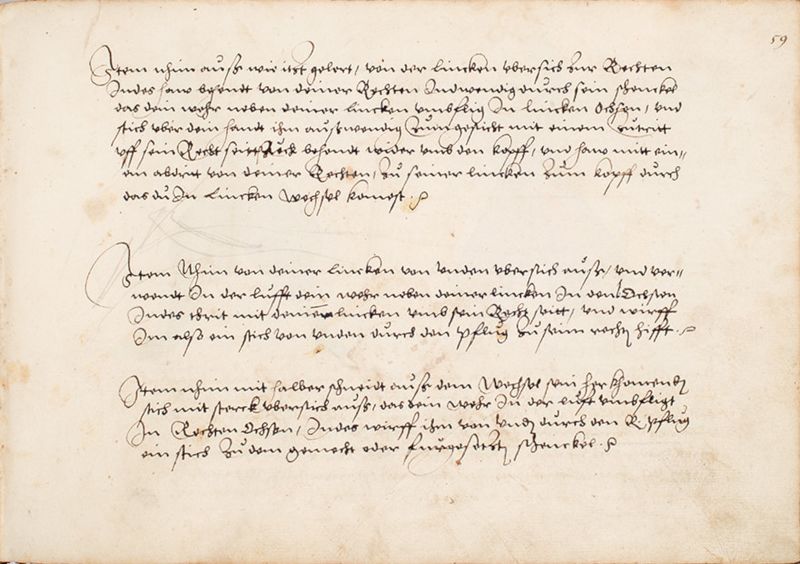 59
Item nhim auß wie itzt gelert, von der lincken vbersich zur Rechten
Indes haw behendt von deiner Rechten Indwendig durch sein schenckel
das dein wehr neben deiner lincken vmbflig In lincken Ochsen, vnd
stich vber dem handt ihm außwendig zum gesicht mit einem zutritt
vff sein Recht seitt, Zuck behendt wider vmb den kopff, vnd haw mitt ein=
em abtritt von deiner Rechten, zu seiner lincken zum kopff durch
das du In lincken Wechsel komest.
Item Nhim von deiner lincken von vnden vbersich auß, vnd ver=
wendt In der lufft dein wehr neben deiner lincken In den Ochsen
Indes thrit mit deinem lincken vmb sein Recht seitt, vnd wirff
Im also ein stich von vnden durch den Pflug zu seim rechten hifft.
Item nhim mit halber schneidt auß dem Wechsel sein her khomenden
stich mit sterck vbersich auß, das dein wehr In der luft vmbfligt
In Rechten Ochsen, Indes wirff ihm von Vnden durch den R. pflug
ein stich zu dem gemecht oder furgesetzten schenckel.